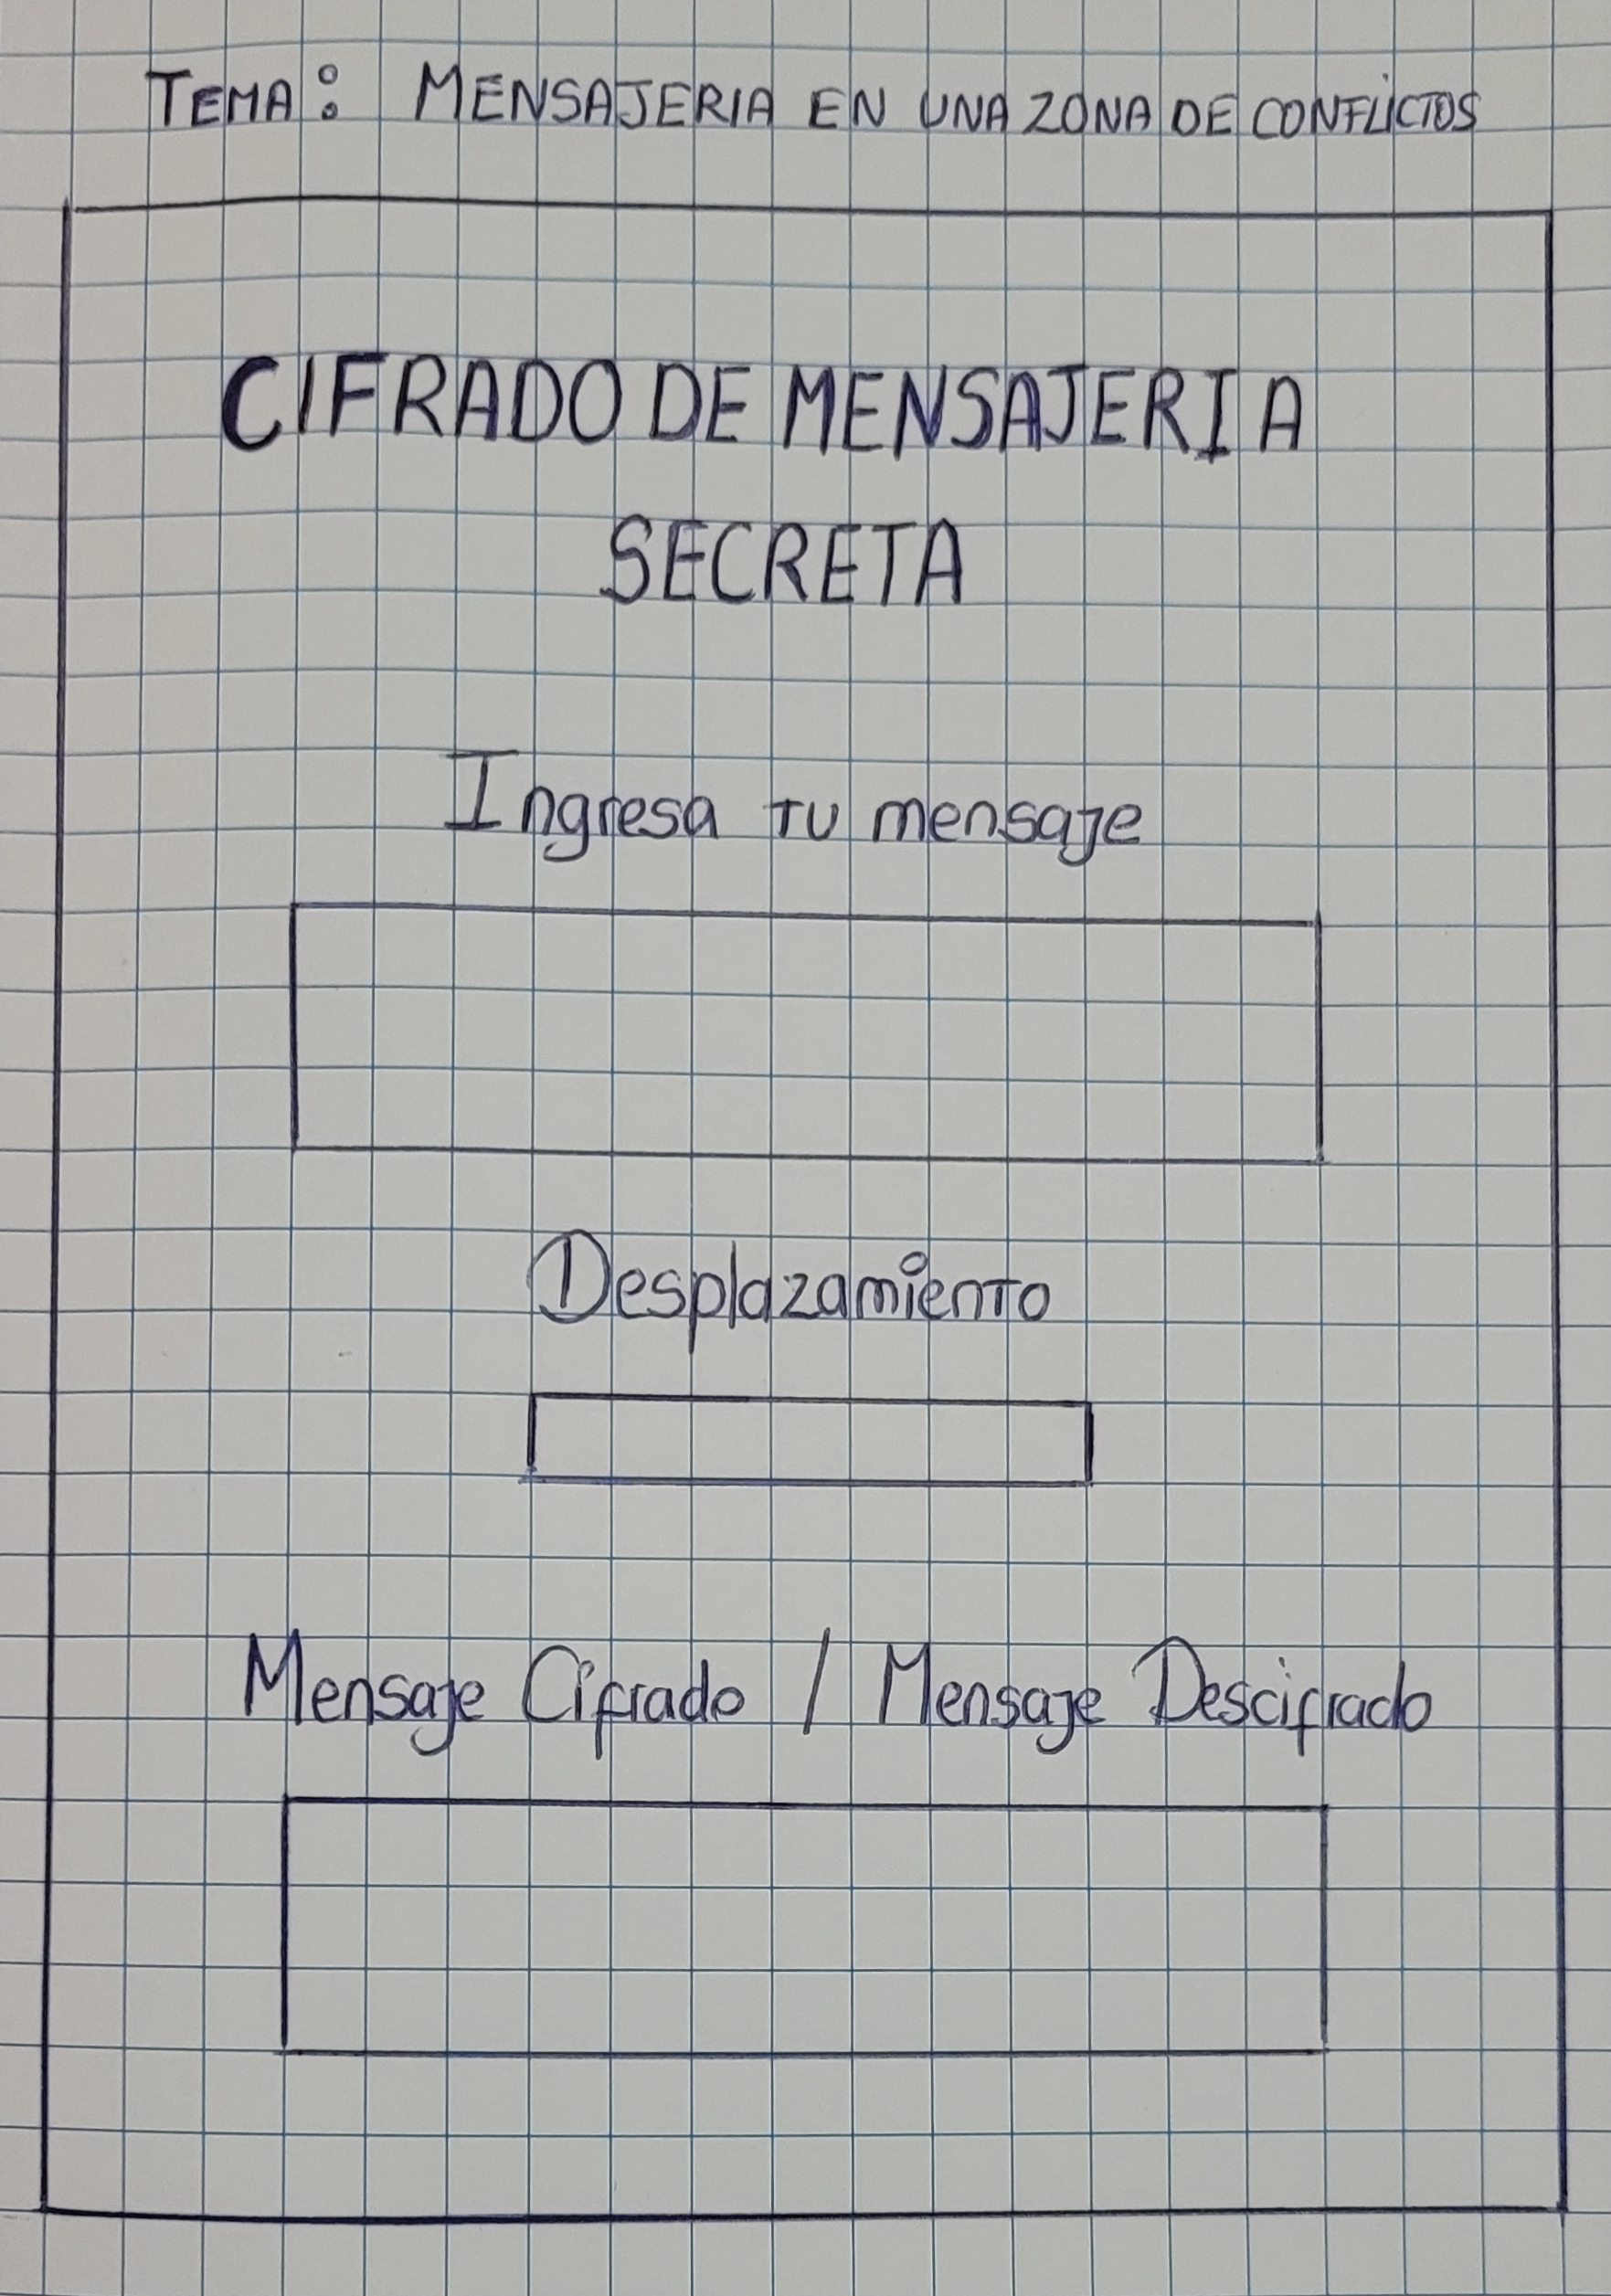 TEMA: MENSAJERIA EN UNA ZONA DE CONFLICTOS
CIFRADO DE MENSAJERIA
SECRETA
Ingresa tu mensaje
Desplazamiento
Mensaje Cifrado / Mensaje Descifrado